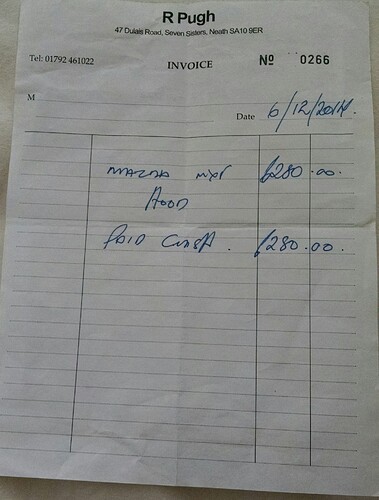 R Pugh
47 Dulais Road, Seven Sisters, Neath SA10 9ER
Tel: 01792 461022
INVOICE
Nº 0266
M
Date 6/12/2014.
MAZDA MX5 £280.00.
HOOD
PAID CASH. £280.00.